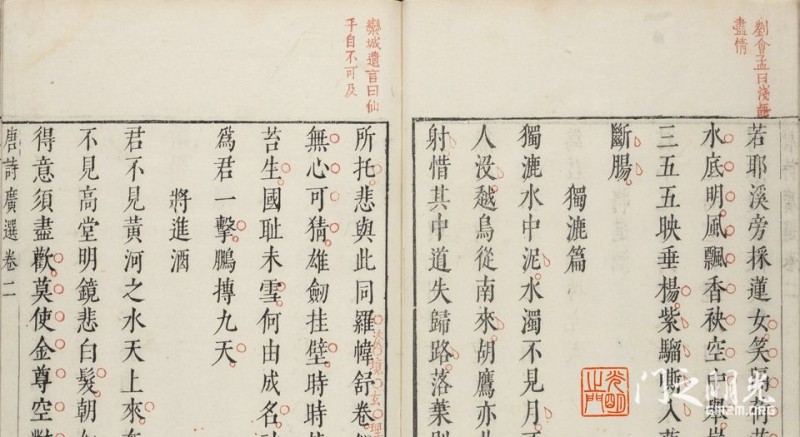 劉會孟曰淺語
盡情
若耶溪旁採蓮女笑隔荷
水底明風飄香袂空中舉
三五五映垂楊紫騮嘶入
斷腸
獨漉篇
獨漉水中泥水濁不見月
人没越鳥從南來胡鷹亦
射惜其中道失歸路落葉別
欒城遺言曰仙
手自不可及
所托悲與此同羅幃舒卷
無心可猜雄劒挂壁時時
苔生國耻未雪何由成名
爲君一擊鵬摶九天
將進酒
君不見黃河之水天上來
不見高堂明鏡悲白髮朝
得意須盡歡莫使金尊空對
唐詩廣選卷二
门之明光